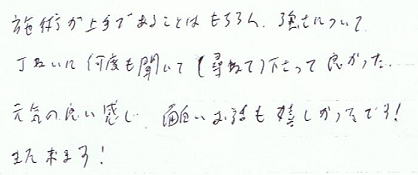 施術が上手であることはもちろん、強さについて
丁ねいに何度も聞いて(尋ねて)下さって良かった。
元気の良い感じ、面白いお話も嬉しかったです!
また来ます!